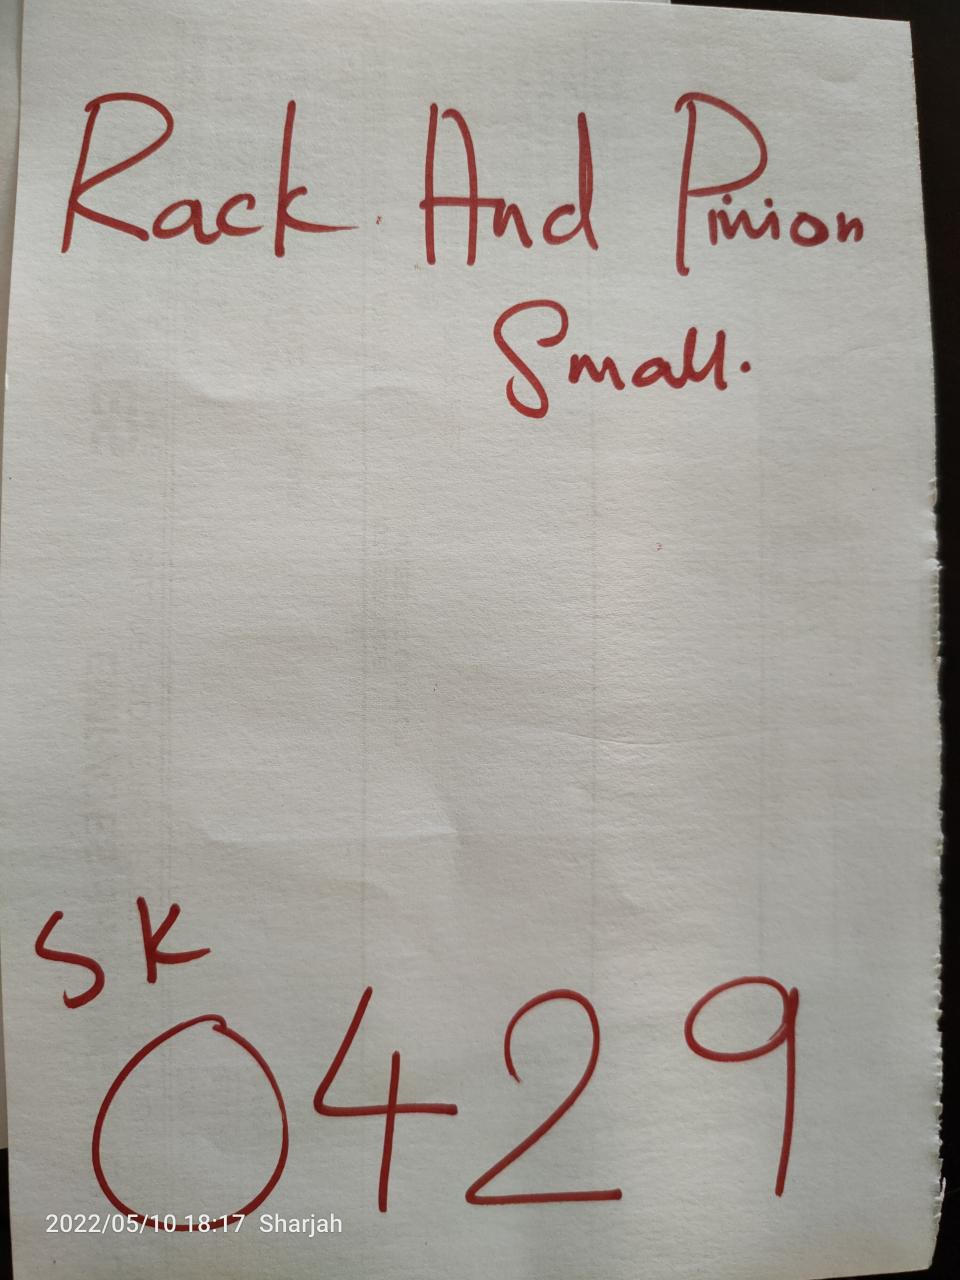 Rack And Pinion
Small.
SK
0429
2022/05/10 18:17 Sharjah